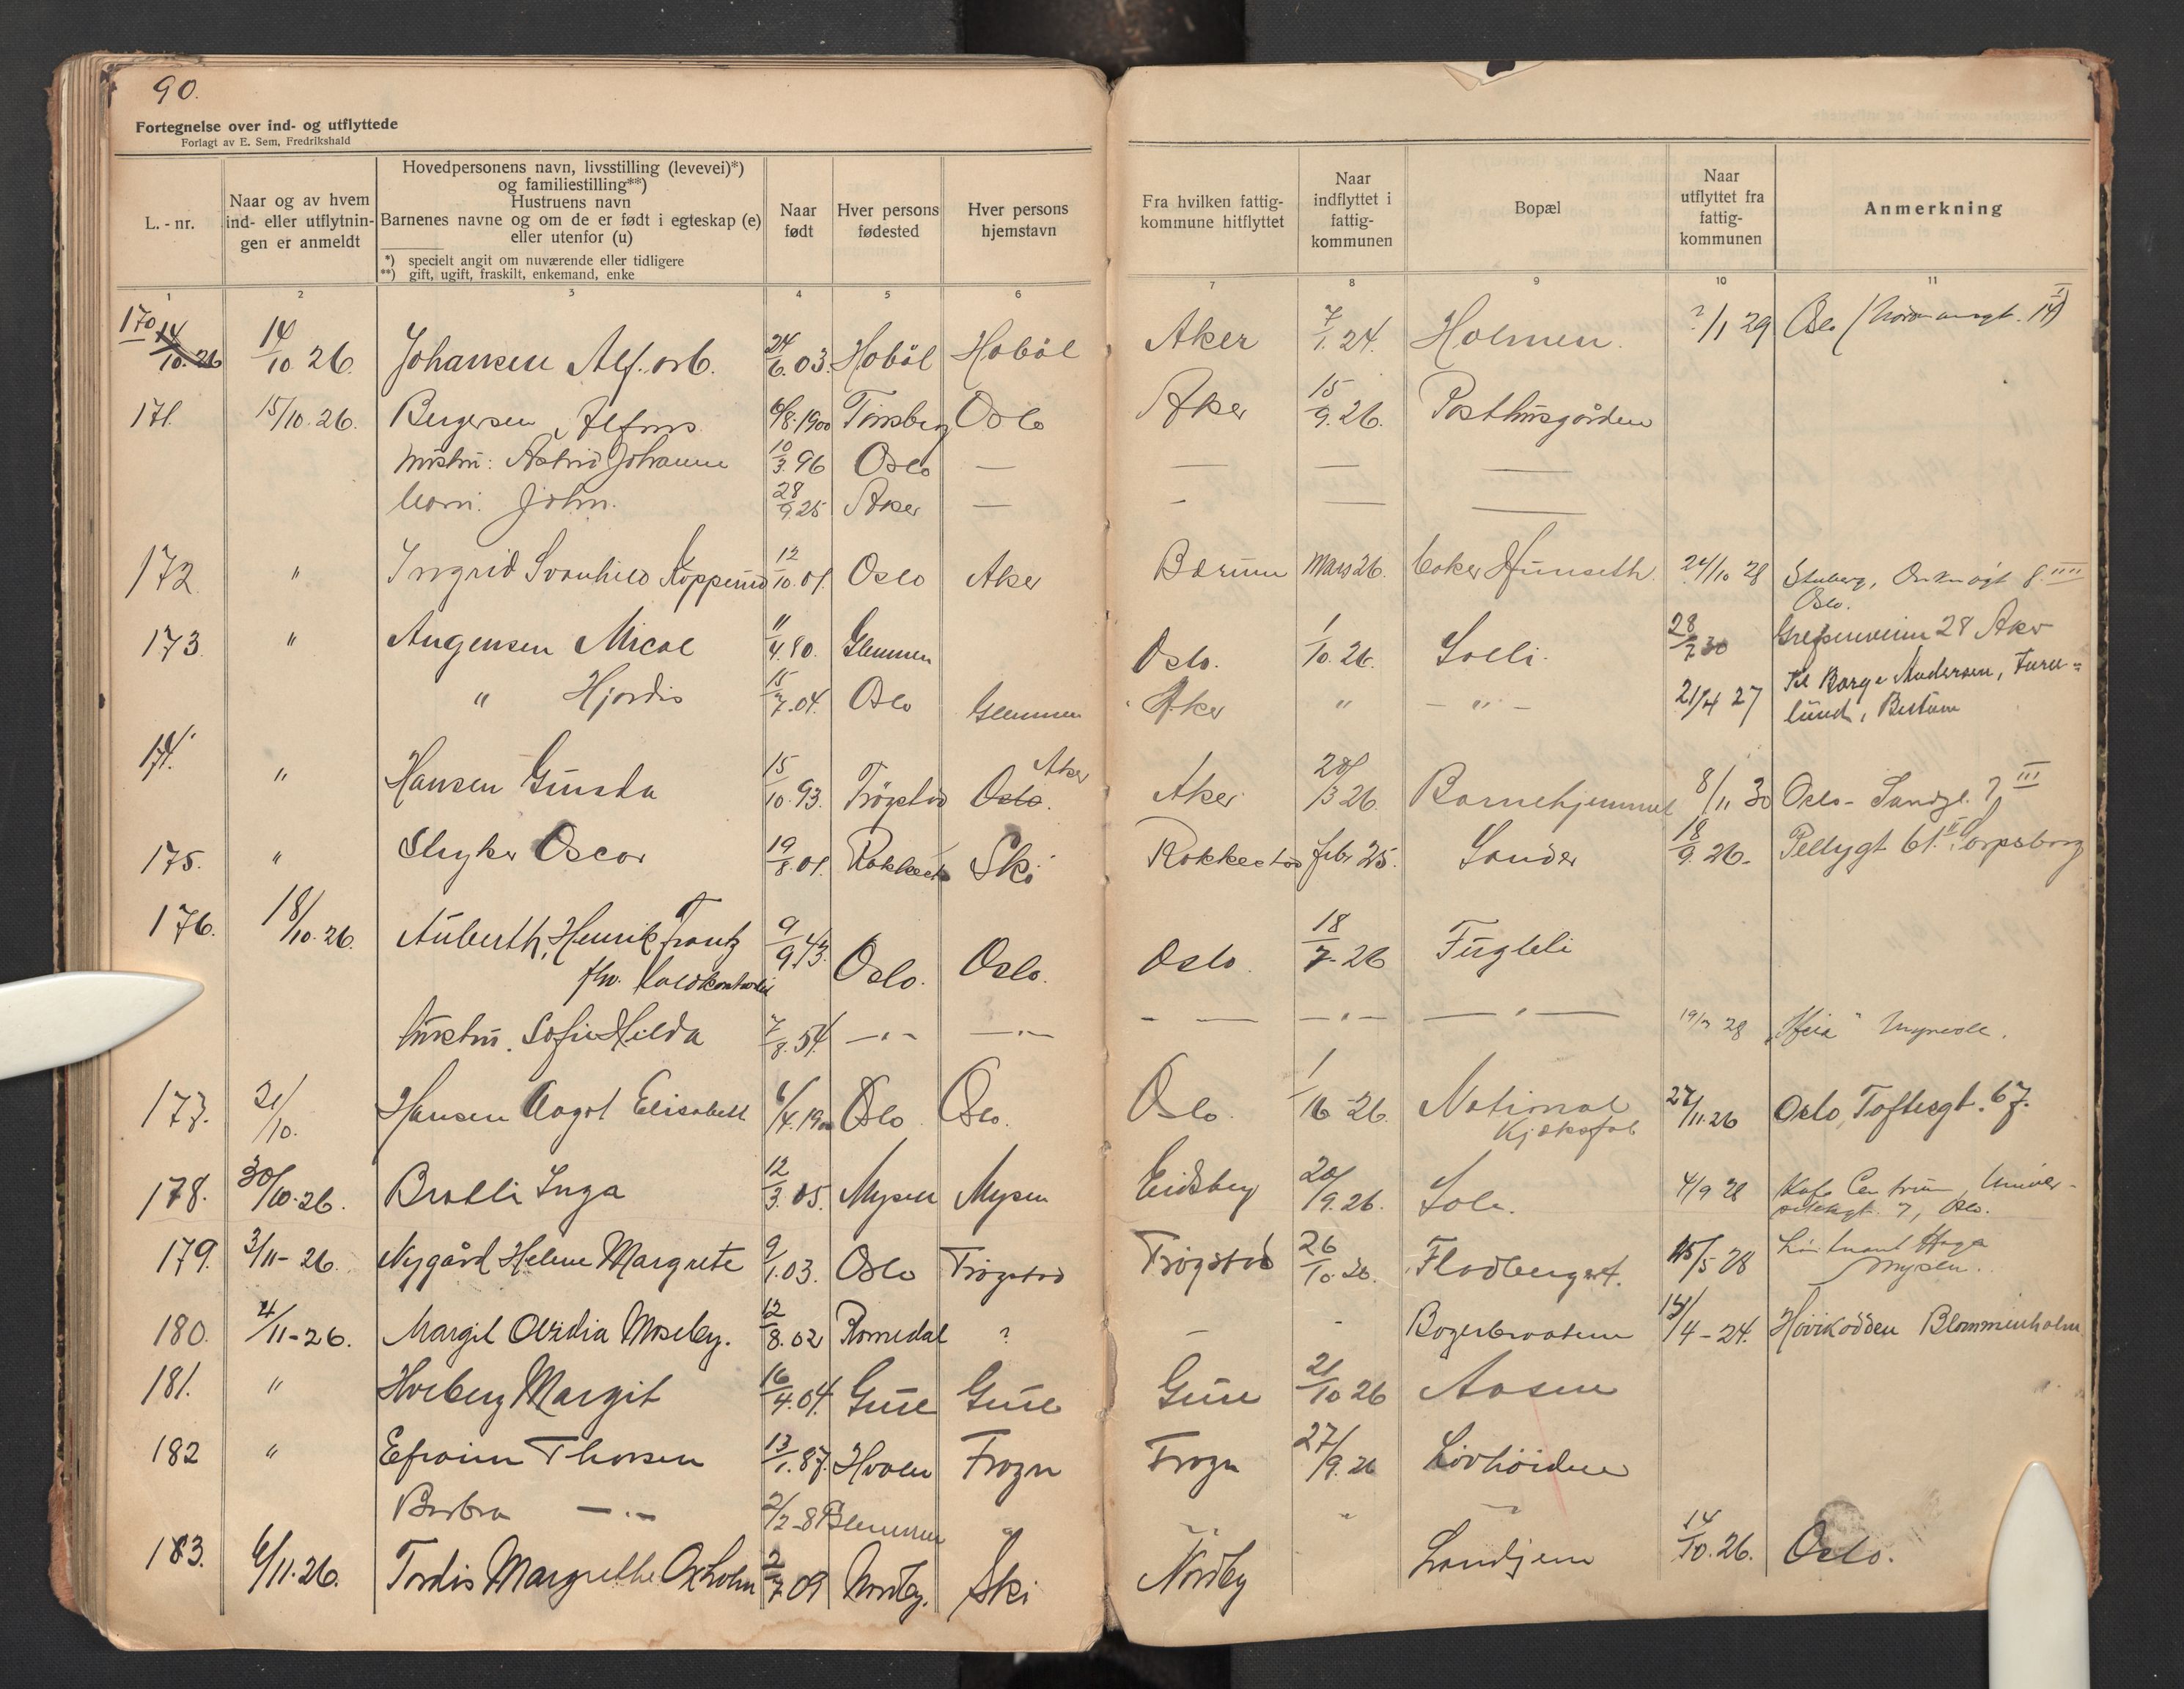 90.
Fortegnelse over ind- og utflyttede
Forlagt av E. Sem, Fredrikshald
L. - nr.
Naar og av hvem ind- eller utflytnin- gen er anmeldt
Hovedpersonens navn, livsstilling (levevei)*)
og familiestilling**)
Hustruens navn
Barnenes navne og om de er født i egteskap (e)
eller utenfor (u)
*) specielt angit om nuværende eller tidligere
**) gift, ugift, fraskilt, enkemand, enke
Naar født
Hver persons fødested
Hver persons hjemstavn
Fra hvilken fattig- kommune hitflyttet
Naar indflyttet i fattig- kommunen
Bopæl
Naar utflyttet fra fattig- kommunen
Anmerkning
1 2 3 4 5 6 7 8 9 10 11
170 14/10. 26 14/10 26. Johansen Alf. arb. 24/6. 03. Hobøl Hobøl Aker 7/1. 24. Holmen. ?/1 29 Oslo
171. 15/10. 26. Bergersen, Alfons 6/8. 1900 Tønsberg Oslo Aker 15/9. 26. Posthusgården
hustru: Astrid Johanne 10/3. 96 Oslo — — — —
barn: John. 28/9 25 Aker — - — —
172. " Ingrid Svanhild Koppenud 12/10. 01. Oslo Aker Bærum Mars 26. Baker Hunseth. 24/10 28 Oslo.
173. " Augensen Mical 11/4. 80. Glemmen Oslo. 1/10. 26. Solli. 28/7 30 Grefsenveien 28 Aker
" Hjordis 15/7. 04. Oslo Glemmen Aker " - " - 21/4 27 Til Borge Andersen, Furu=
lund, Bestum
174. " Hansen Gunda 15/10. 93. Trøgstad Oslo. Aker Aker 20/3 26. Barnehjemmet 8/11 30 Oslo - Sandgt. 7 III
175. " Stryker Oscar 19/8. 01. Rakkestad Ski Rakkestad febr 25. Sander 18/9. 26. Pellygt 61. II Sarpsborg
176. 18/10. 26. Auberth, Henrik Frantz 9/9. 43. Oslo. Oslo. Oslo. 18/7. 26 Fugleli
fhv.
hustru. Sofie Hilda 7/8. 54. — " — — " — - — — " — — " — 19/3 28 "Heia" Mysen
177. 21/10. Hansen Aagot Elisabeth 6/4. 1900 Oslo Oslo. Oslo. 1/10 26. National Kjæksfab 27/11. 26 Oslo, Toftesgt. 67.
178. 30/10. 26. Bratli Inga 12/3. 05. Mysen Mysen Eidsberg 20/9. 26. Sole. 4/9 28 Kafe Centrum, Univer-
sitetsgt. 7, Oslo.
179. 3/11 - 26. Nygård Helene Margrete 9/1. 03. Oslo Trøgstad Trøgstad 26/10. 26. Flodberg 15/5 28 Løitnant Haga
Mysen.
180. 4/11 - 26. Margit Ovidia Moseby. 12/8. 02 Romedal ? — - Bogerbraaten 13/4 - 24. Høvikodden Blommenholm
181. " Hoeberg Margit 16/4. 04. Grue Grue Grue 21/10 26 Aasen
182 " Efraim Thorsen 13/1. 87. Hvaler Frogn Frogn 27/9. 26 Løvhöiden
Barbra — " — 2/2 - 8 Glemmen " " " "
183. 6/11. 26. Tordis Margrethe Oxholm 2/7 09 Nordby. Ski Nordby Landjem 14/10. 26. Oslo.